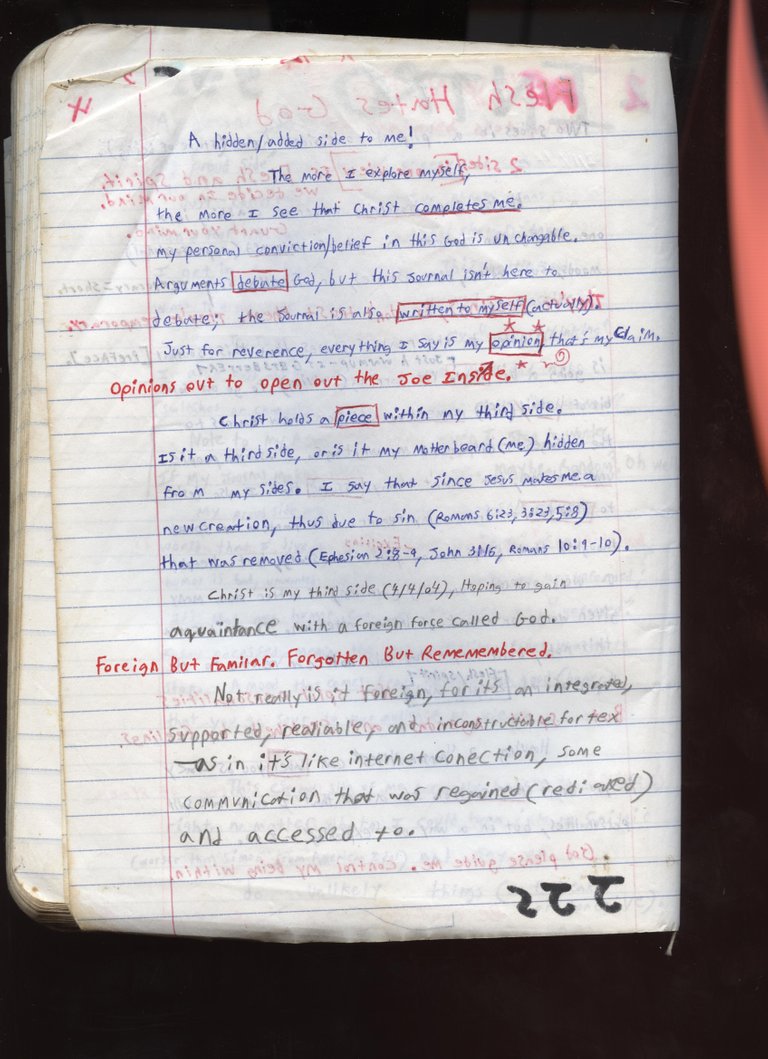 A hidden/added side to me!
The more I explore myself,
the more I see that Christ completes me.
my personal conviction/belief in this God is unchangable.
Arguments debate God, but this Journal isn't here to
debate; the Journal is also written to myself (actually).
Just for reverence, everything I say is my opinion that's my claim.
Opinions out to open out the Joe Inside.
Christ holds a piece within my third side.
Is it a third side, or is it my Motherbeard (me) hidden
from my sides. I say that since Jesus makes me a
new creation, thus due to sin (Romans 6:23, 3:23, 5:8)
that was removed (Ephesian 2:8-9, John 3:16, Romans 10:9-10).
Christ is my third side (4/4/04), Hoping to gain
aquaintance with a foreign force called God.
Foreign But Familar. Forgotten But Rememembered.
Not really is it foreign, for its an integrated,
supported, realiable, and inconstructable for tex
—as in it's like internet Conection, some
communication that was regained (redialed)
and accessed to.